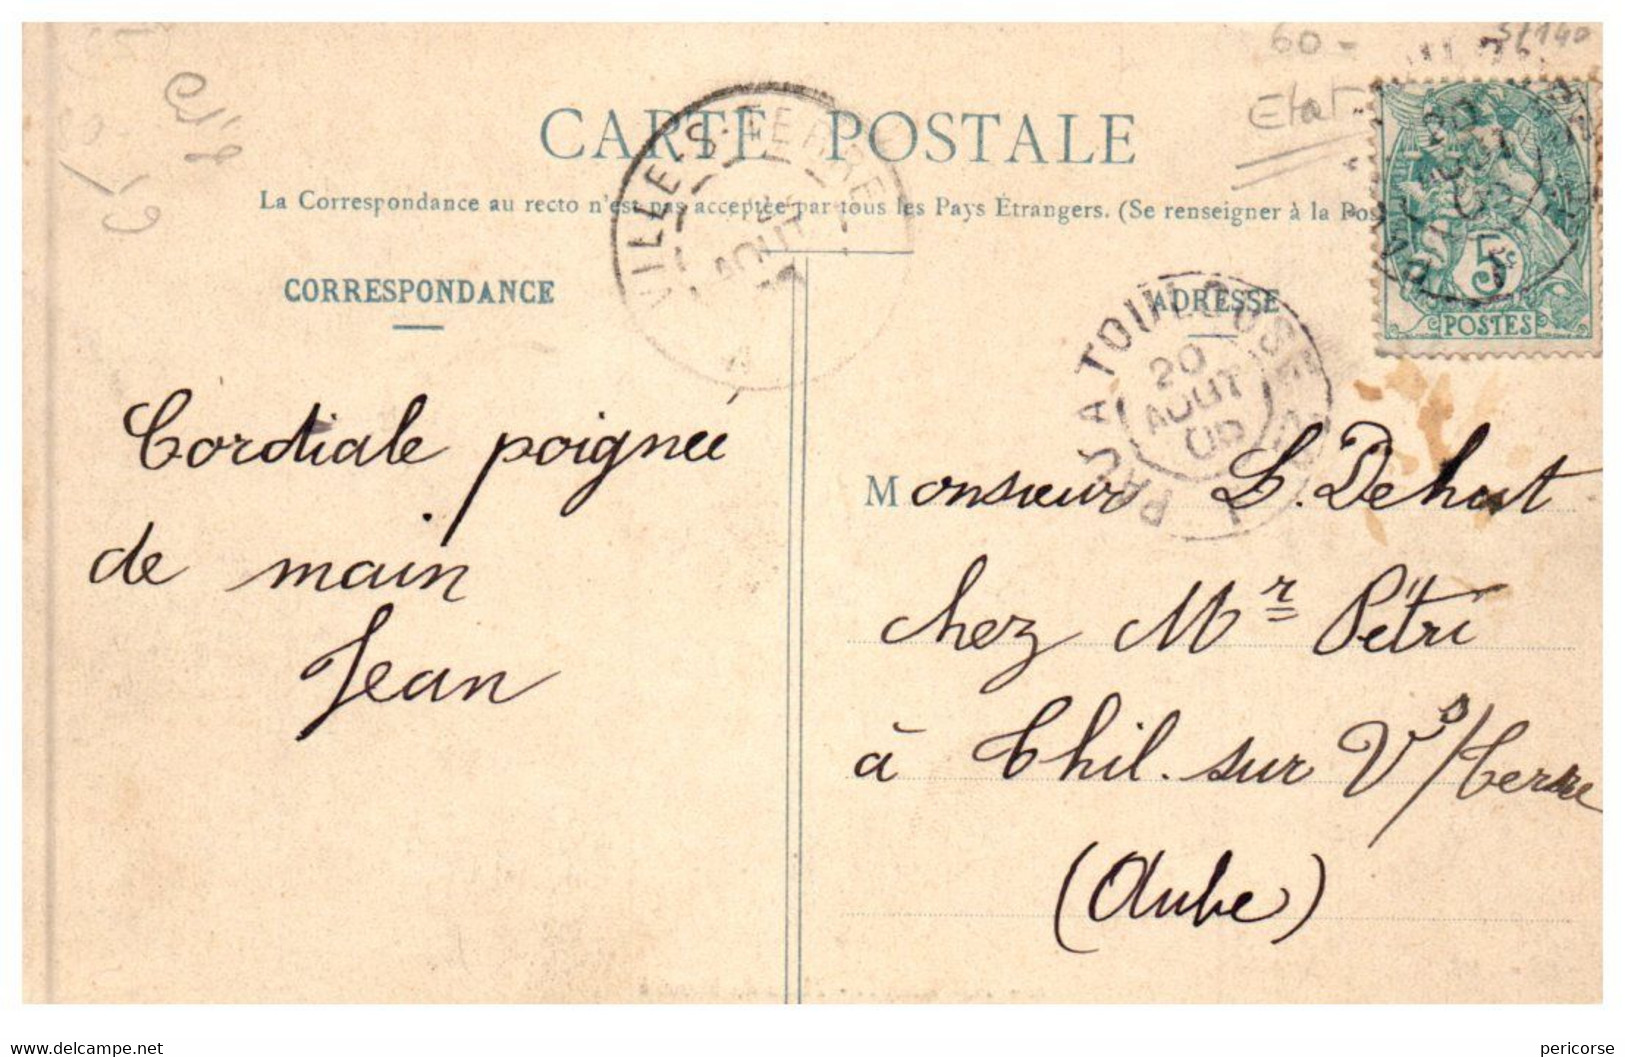 60-
Etat
CARTE POSTALE
La Correspondance au recto n'est pas acceptée par tous les Pays Étrangers. (Se renseigner à la Pos
CORRESPONDANCE
ADRESSE
VILLE-S-TERRE
AOUT
PAU A TOULOUSE
20
AOUT
5c
POSTES
Cordiale poignée
de main
Jean
Monsieur L. Dehut
chez Mr Pétri
à Thil. sur Vs/Terre
(Aube)
delcampe.net
pericorse